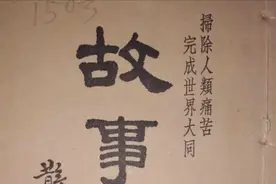 1503
掃除人類痛苦
完成世界大同
故事
叢